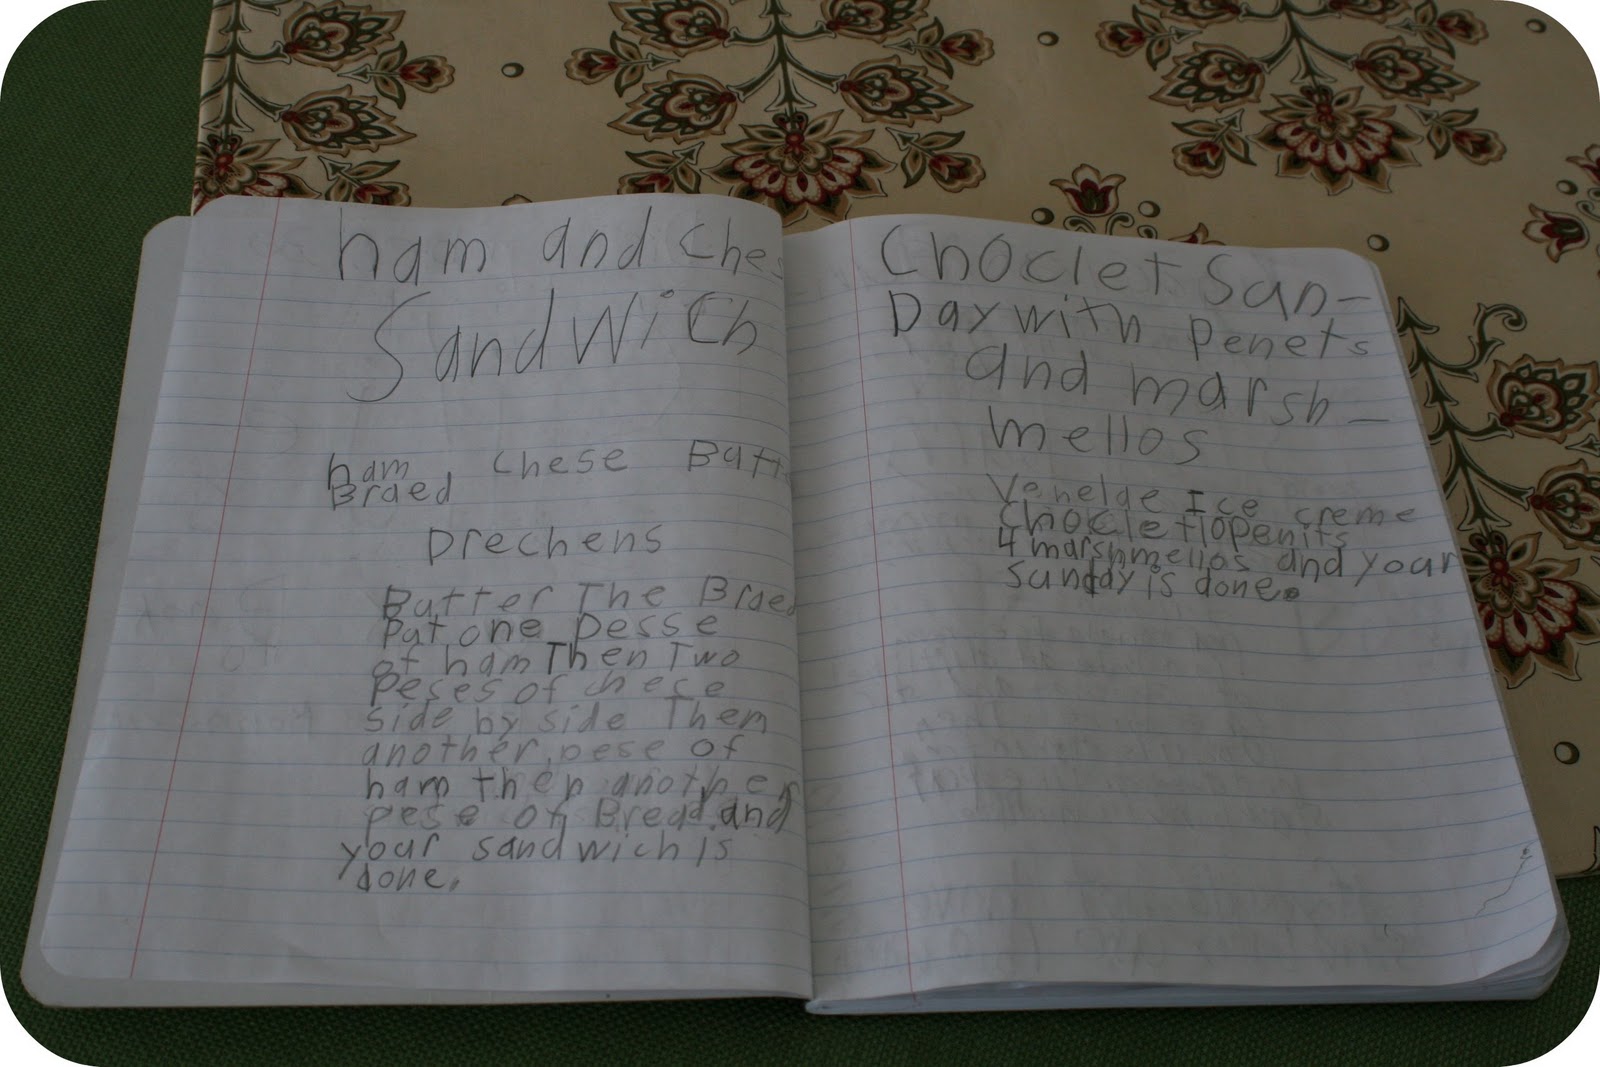 ham and Ches
SandWiCh
ham Chese Butt
Braed
Drechens
Butter The Braed
Put one pesse
of ham Then Two
Peses of chece
side by side Them
another pese of
ham then another
pese of Bread and
your sandwich is
done.
Choclet San-
Day with Penets
and marsh-
mellos
Venelde Ice creme
Choclet 10 penits
4 marshmellos and your
sunday is done.